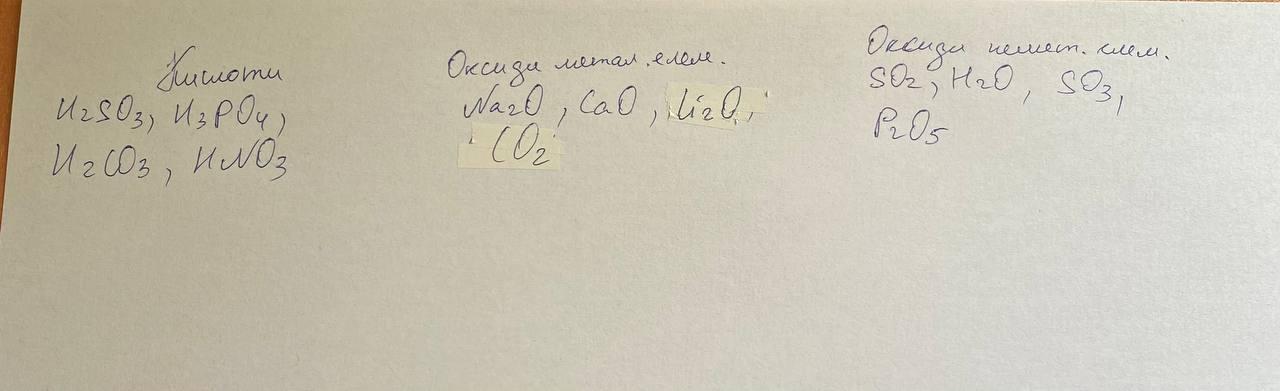 Кислоти
H2SO3, H3PO4,
H2CO3, HNO3
Оксиди метал. елем.
Na2O, CaO, Li2O,
CO2
Оксиди немет. елем.
SO2, H2O, SO3,
P2O5